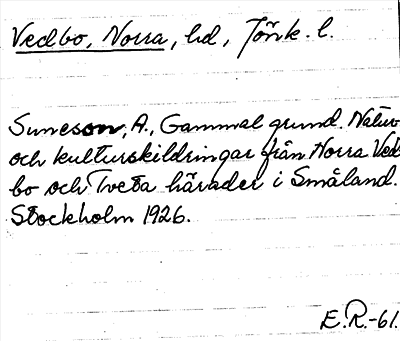 Vedbo, Norra, hd, Jönk. l.
Suneson, A., Gammal grund. Natur
och kulturskildringar från Norra Ved
bo och Tveta härader i Småland.
Stockholm 1926.
E.R.-61.